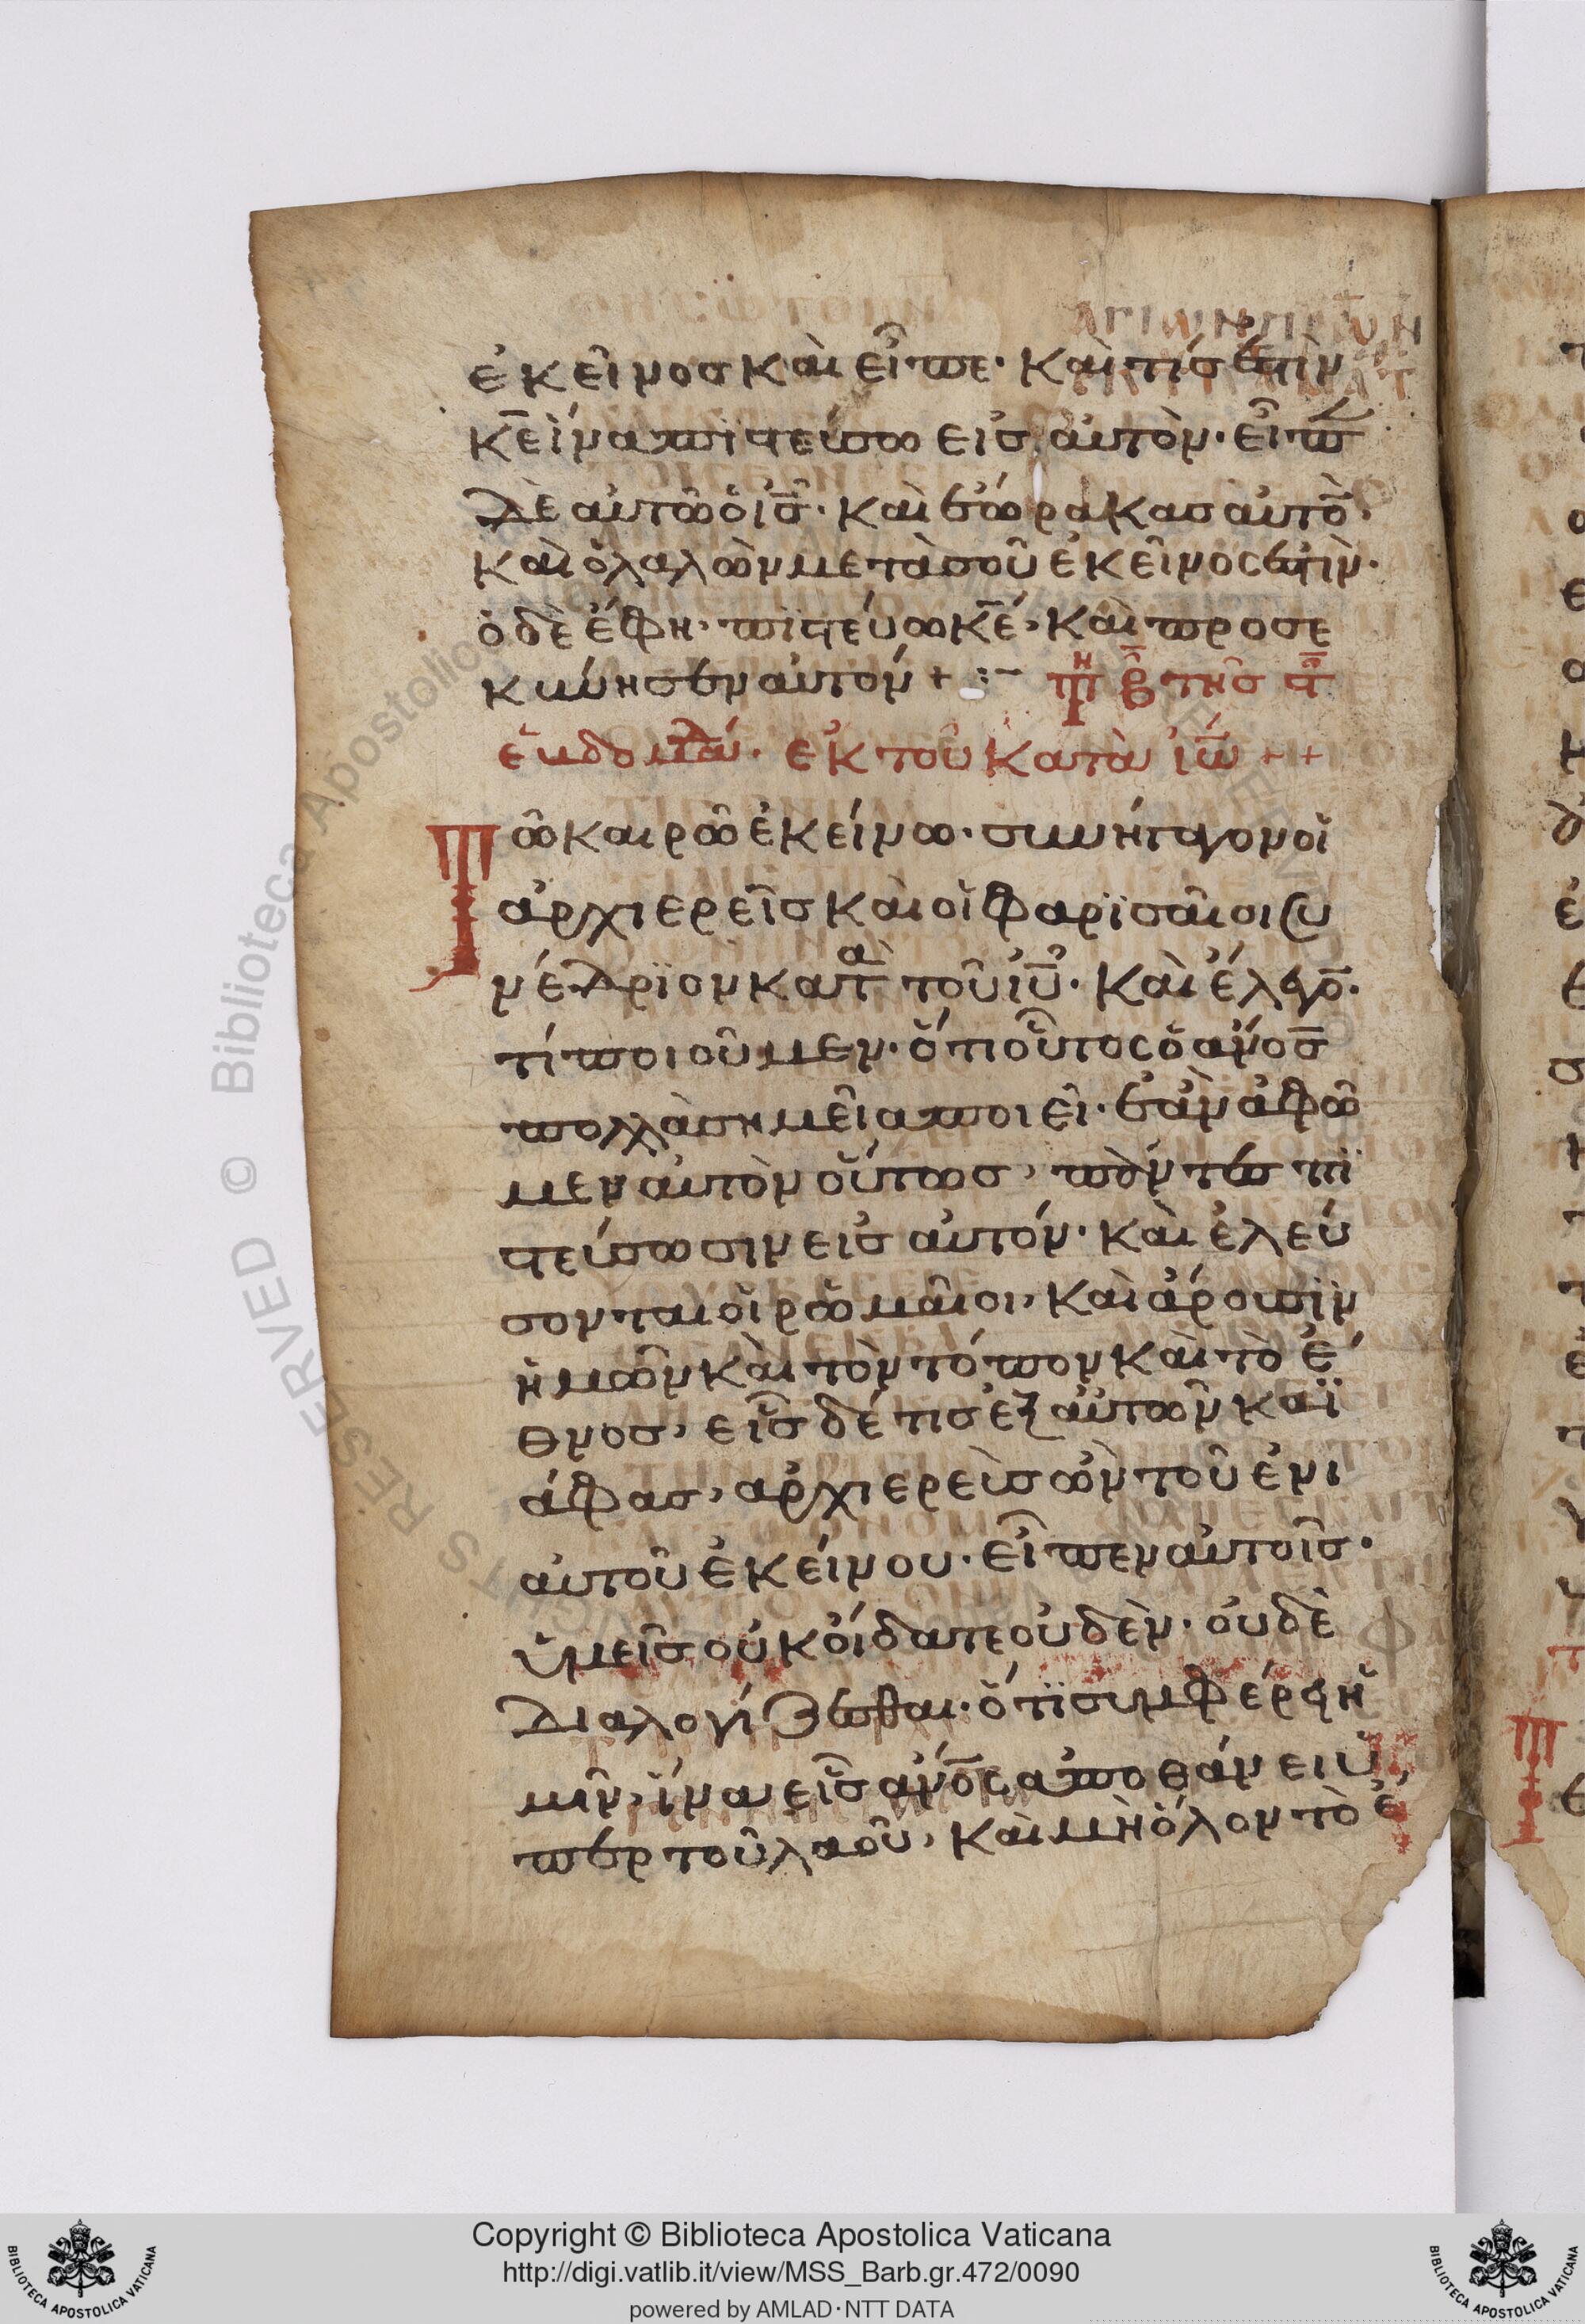 ἐκεῖνος καὶ εἶπε· καὶ τίς ἐστὶν
κ̅ε̅ ἵνα πιστεύσω εἰς αὐτὸν· εἶπ
δὲ αὐτῶ ὁ ι̅ς̅· καὶ ἑώρακας αὐτὸ̅·
καὶ ὁ λαλῶν μετὰ σοῦ ἐκεῖνος ἐστὶν·
ὁ δὲ ἔφη· πιστεύω κ̅ε̅· καὶ προσε
κύνησεν αὐτόν + :~ τῆ β̅ τῆς ς̅
ἑβδομάδ· ἐκ τοῦ κατὰ ἰω̅ ++
Τῶ καιρῶ ἐκείνω· συνήγαγον οἱ
ἀρχιερεῖς καὶ οἱ φαρϊσαῖοι συ
νέδρϊον κατὰ τοῦ ι̅υ̅· καὶ ἔλεγο̅·
τί ποιοῦμεν· ὅτι οὗτος ὁ α̅ν̅ο̅ς̅
πολλὰ σημεῖα ποιεῖ· ἐὰν ἀφῶ
μεν αὐτὸν οὕτως, πάντες πϊ
στεύσωσιν εἰς αὐτόν· καὶ ἐλεύ
σονται οἱ ρωμαῖοι, καὶ ἀροῦσϊν
ἡμῶν καὶ τὸν τόπον καὶ τὸ ἔ
θνος, εἷς δέ τις ἐξ αὐτῶν καϊ
άφας, ἀρχιερεὺς ὢν τοῦ ἐνι
αυτοῦ ἐκείνου· εἶπεν αὐτοῖς·
ὑμεῖς οὐκ οἴδατε οὐδὲν· οὐδὲ
διαλογίζεσθαι· ὅτϊ συμφέρει ἡ
μῖν, ἵνα εἷς α̅ν̅ο̅ς̅ ἀποθάνει ὑ
πὲρ τοῦ λαοῦ, καὶ μὴ ὅλον τὸ ἔ
Copyright © Biblioteca Apostolica Vaticana
http://digi.vatlib.it/view/MSS_Barb.gr.472/0090
powered by AMLAD·NTT DATA